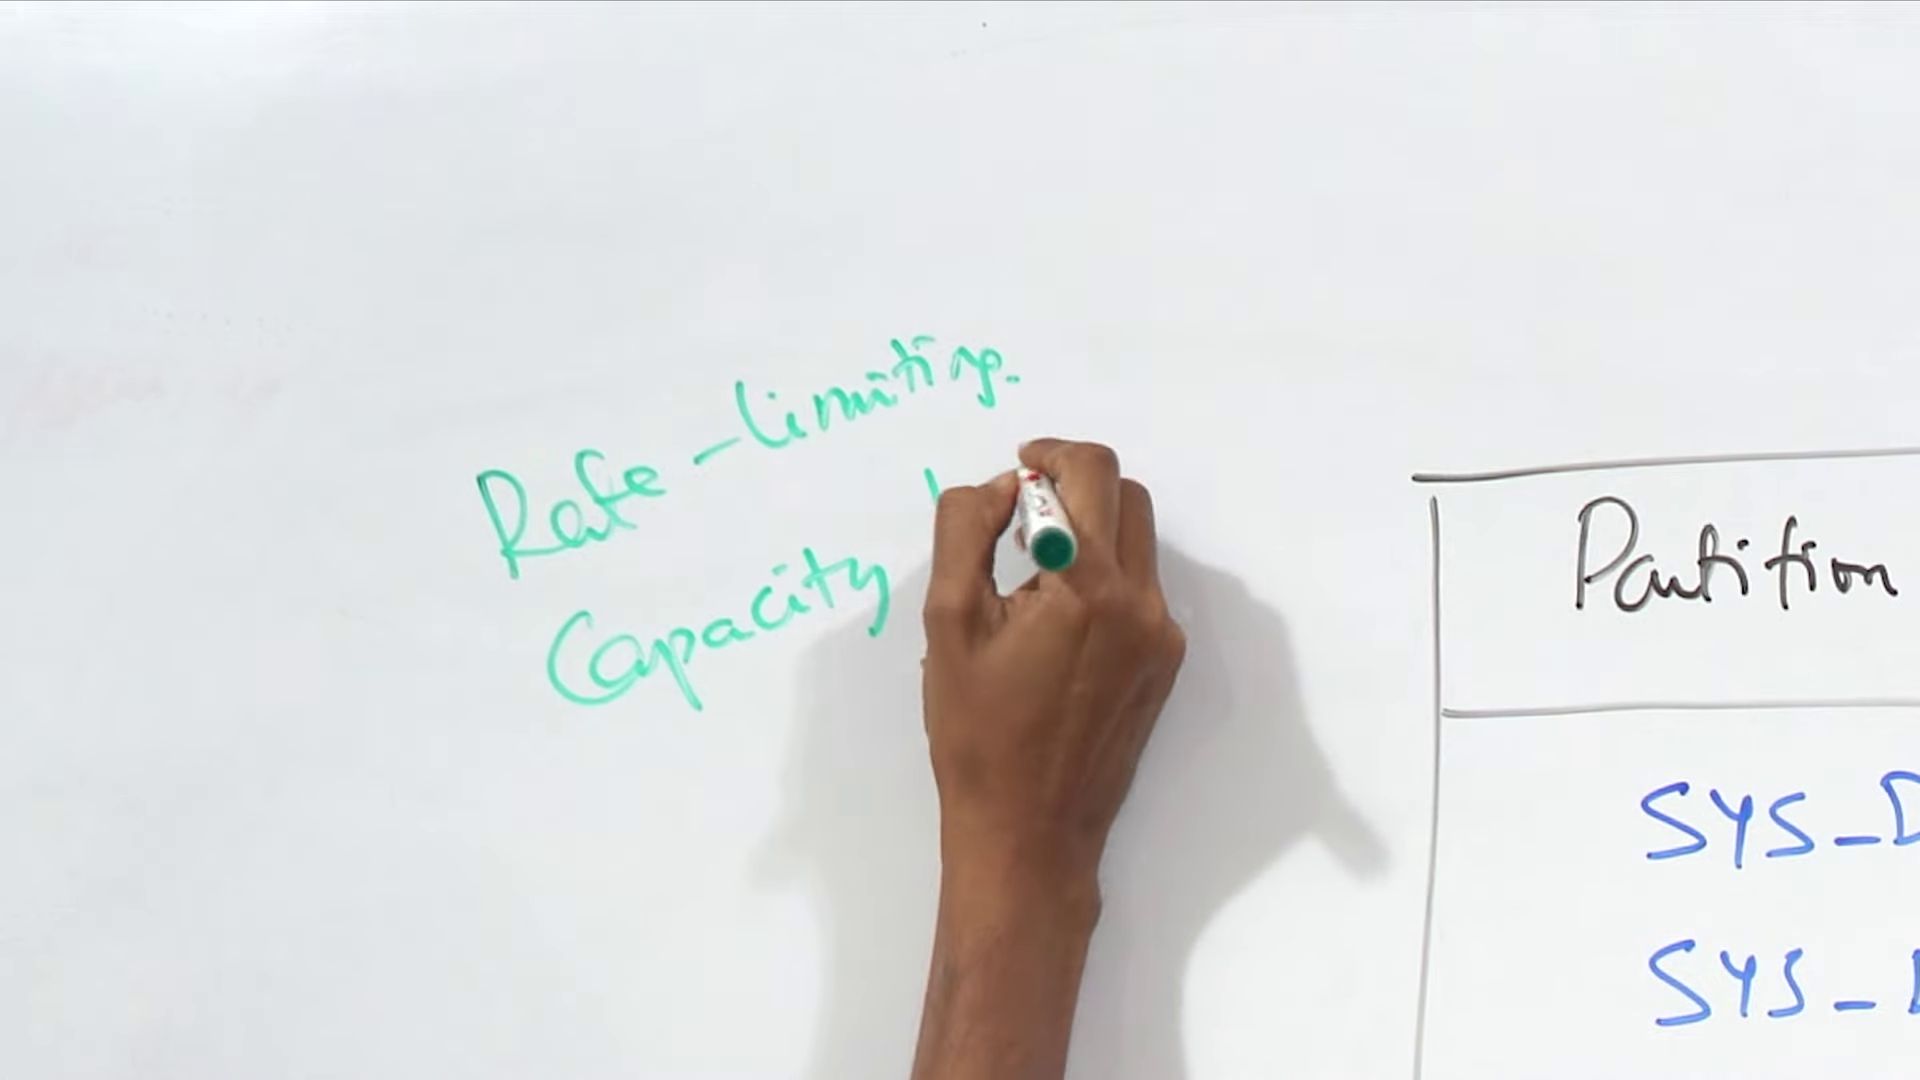 Rate-limiting.
Capacity
Partition
SYS_D
SYS_